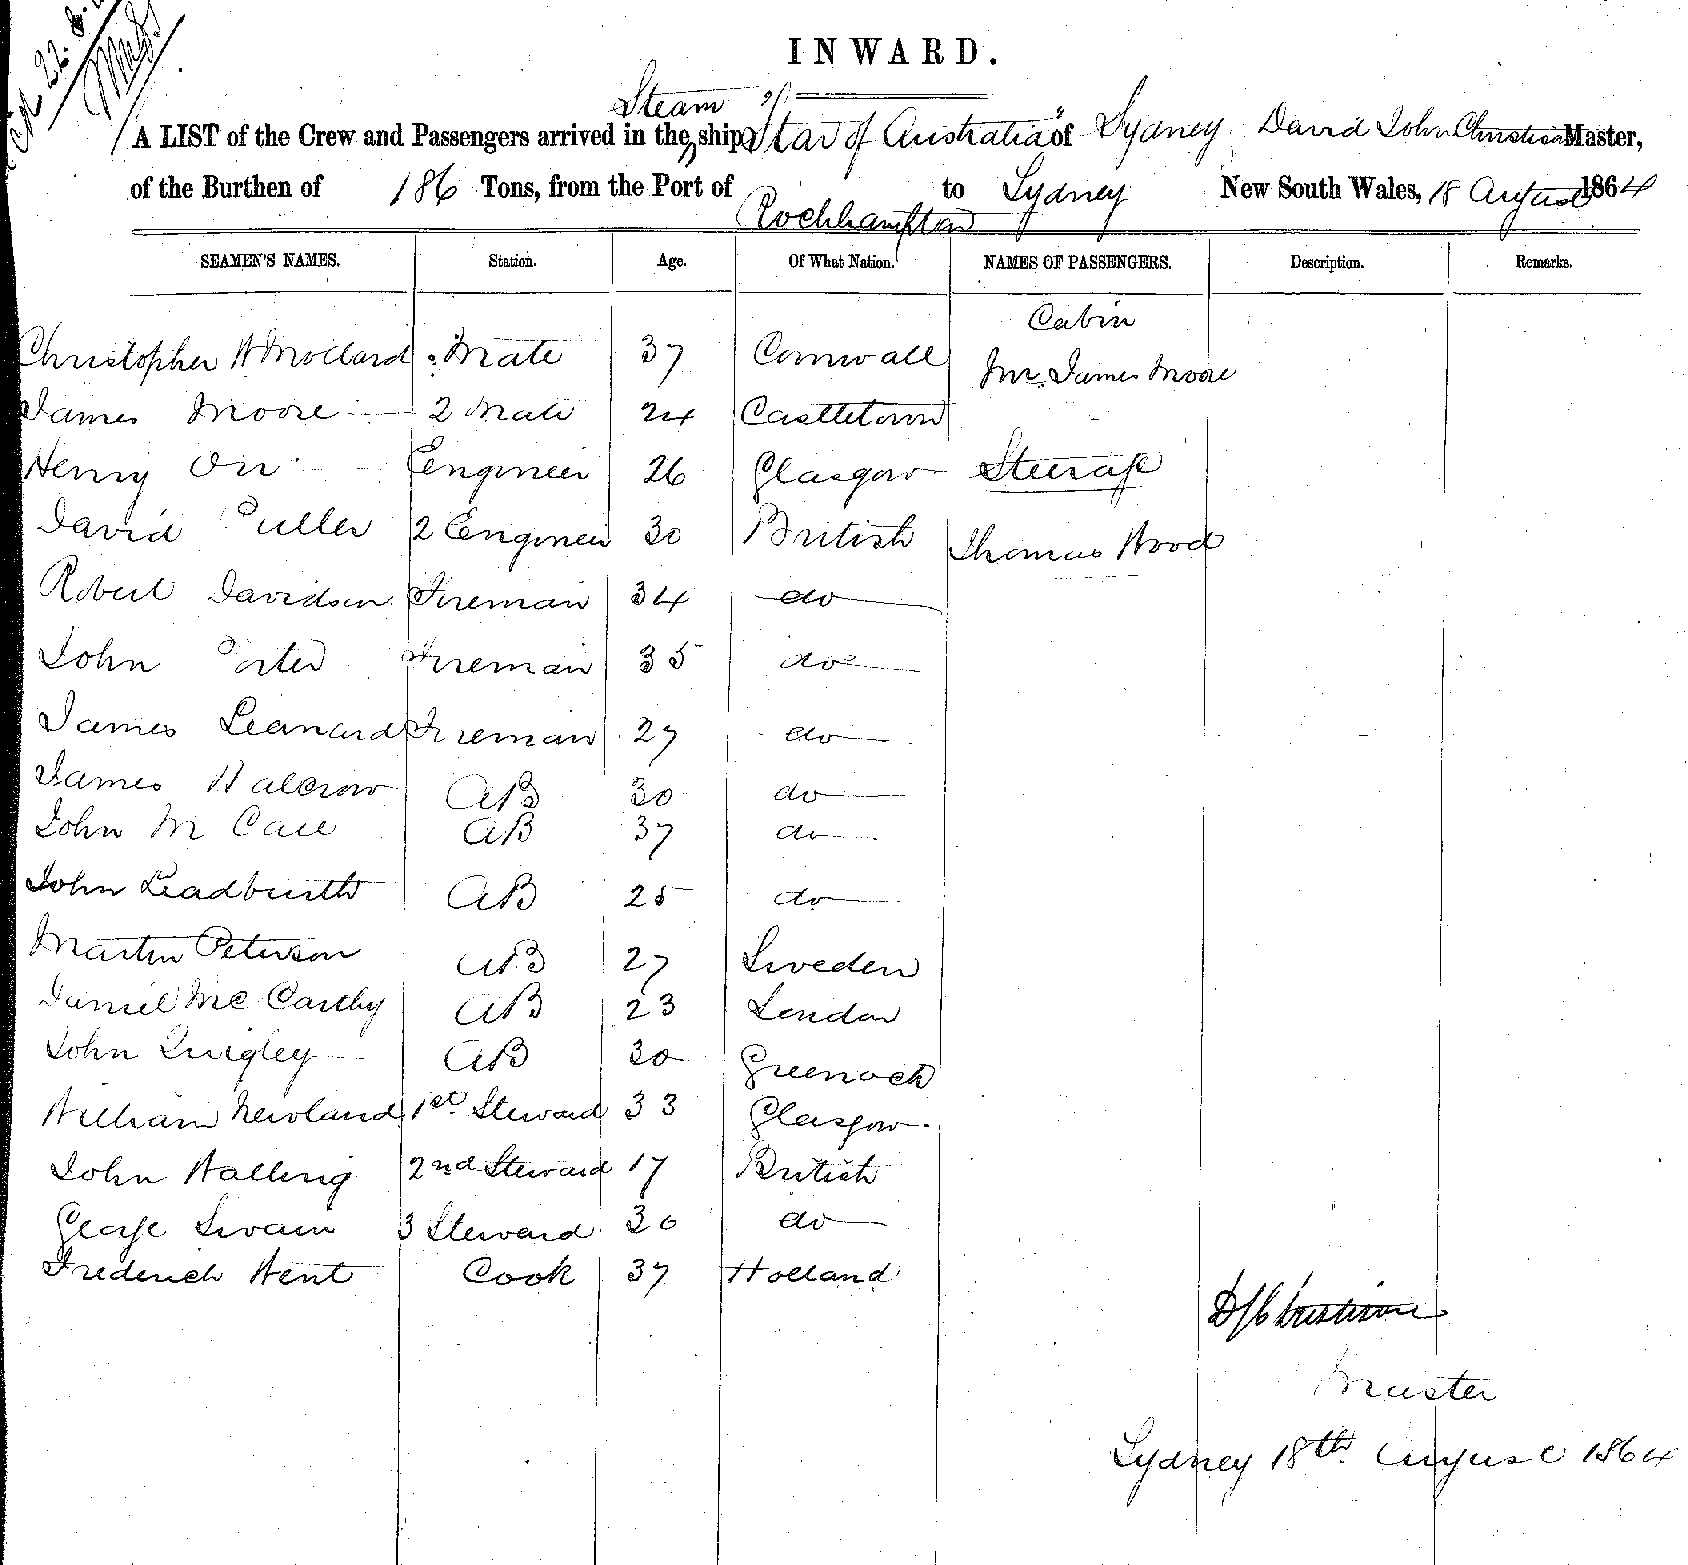 22.8.
INWARD.
Steam
A LIST of the Crew and Passengers arrived in the ship "Star of Australia" of Sydney David John Christison Master,
of the Burthen of 186 Tons, from the Port of Rockhampton to Sydney New South Wales, 18 August 1864
SEAMEN'S NAMES. Station. Age. Of What Nation. NAMES OF PASSENGERS. Description. Remarks.
Cabin
Christopher H Mollard Mate 37 Cornwall Mr. James Moore
James Moore 2 Mate 24 Castletown
Henry Orr Engineer 26 Glasgow Steerage
David Puller 2 Engineer 30 British Thomas Wood
Robert Davidson Fireman 34 do
John Porter Fireman 35 do
James Leanard Fireman 27 do
James Halcrow AB 30 do
John M AB 37 do
John AB 25 do
Martin Peterson AB 27 Sweden
Daniel Mc Carthy AB 23 London
John Quigley AB 30 Greenock
William Newland 1st Steward 33 Glasgow
John Halling 2nd Steward 17 British
George Swain 3 Steward 30 do
Frederick Went Cook 37 Holland
D J Christison
Master
Sydney 18th August 1864